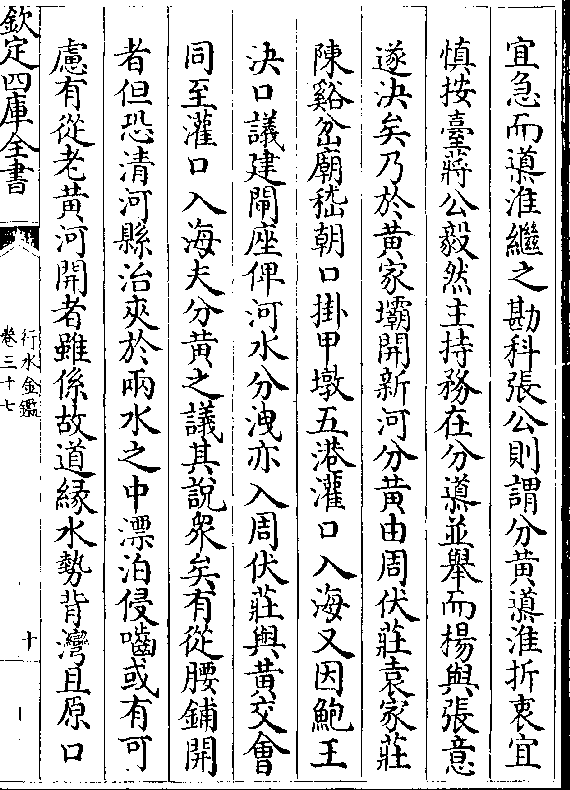 宜急而導淮繼之勘科張公則謂分黃導淮折衷宜
慎按臺蔣公毅然主持務在分導並舉而楊與張意
遂決矣乃於黃家壩開新河分黃由周伏莊袁家莊
陳谿岔廟嵇朝口掛甲墩五港灌口入海又因鮑王
決口議建閘座俾河水分洩亦入周伏莊與黃交會
同至灌口入海夫分黃之議其說衆矣有從腰鋪開
者但恐清河縣治夾於兩水之中漂泊侵嚙或有可
慮有從老黃河開者雖係故道緣水勢背灣且原口
欽定四庫全書
行水金鑑
卷三十七
十